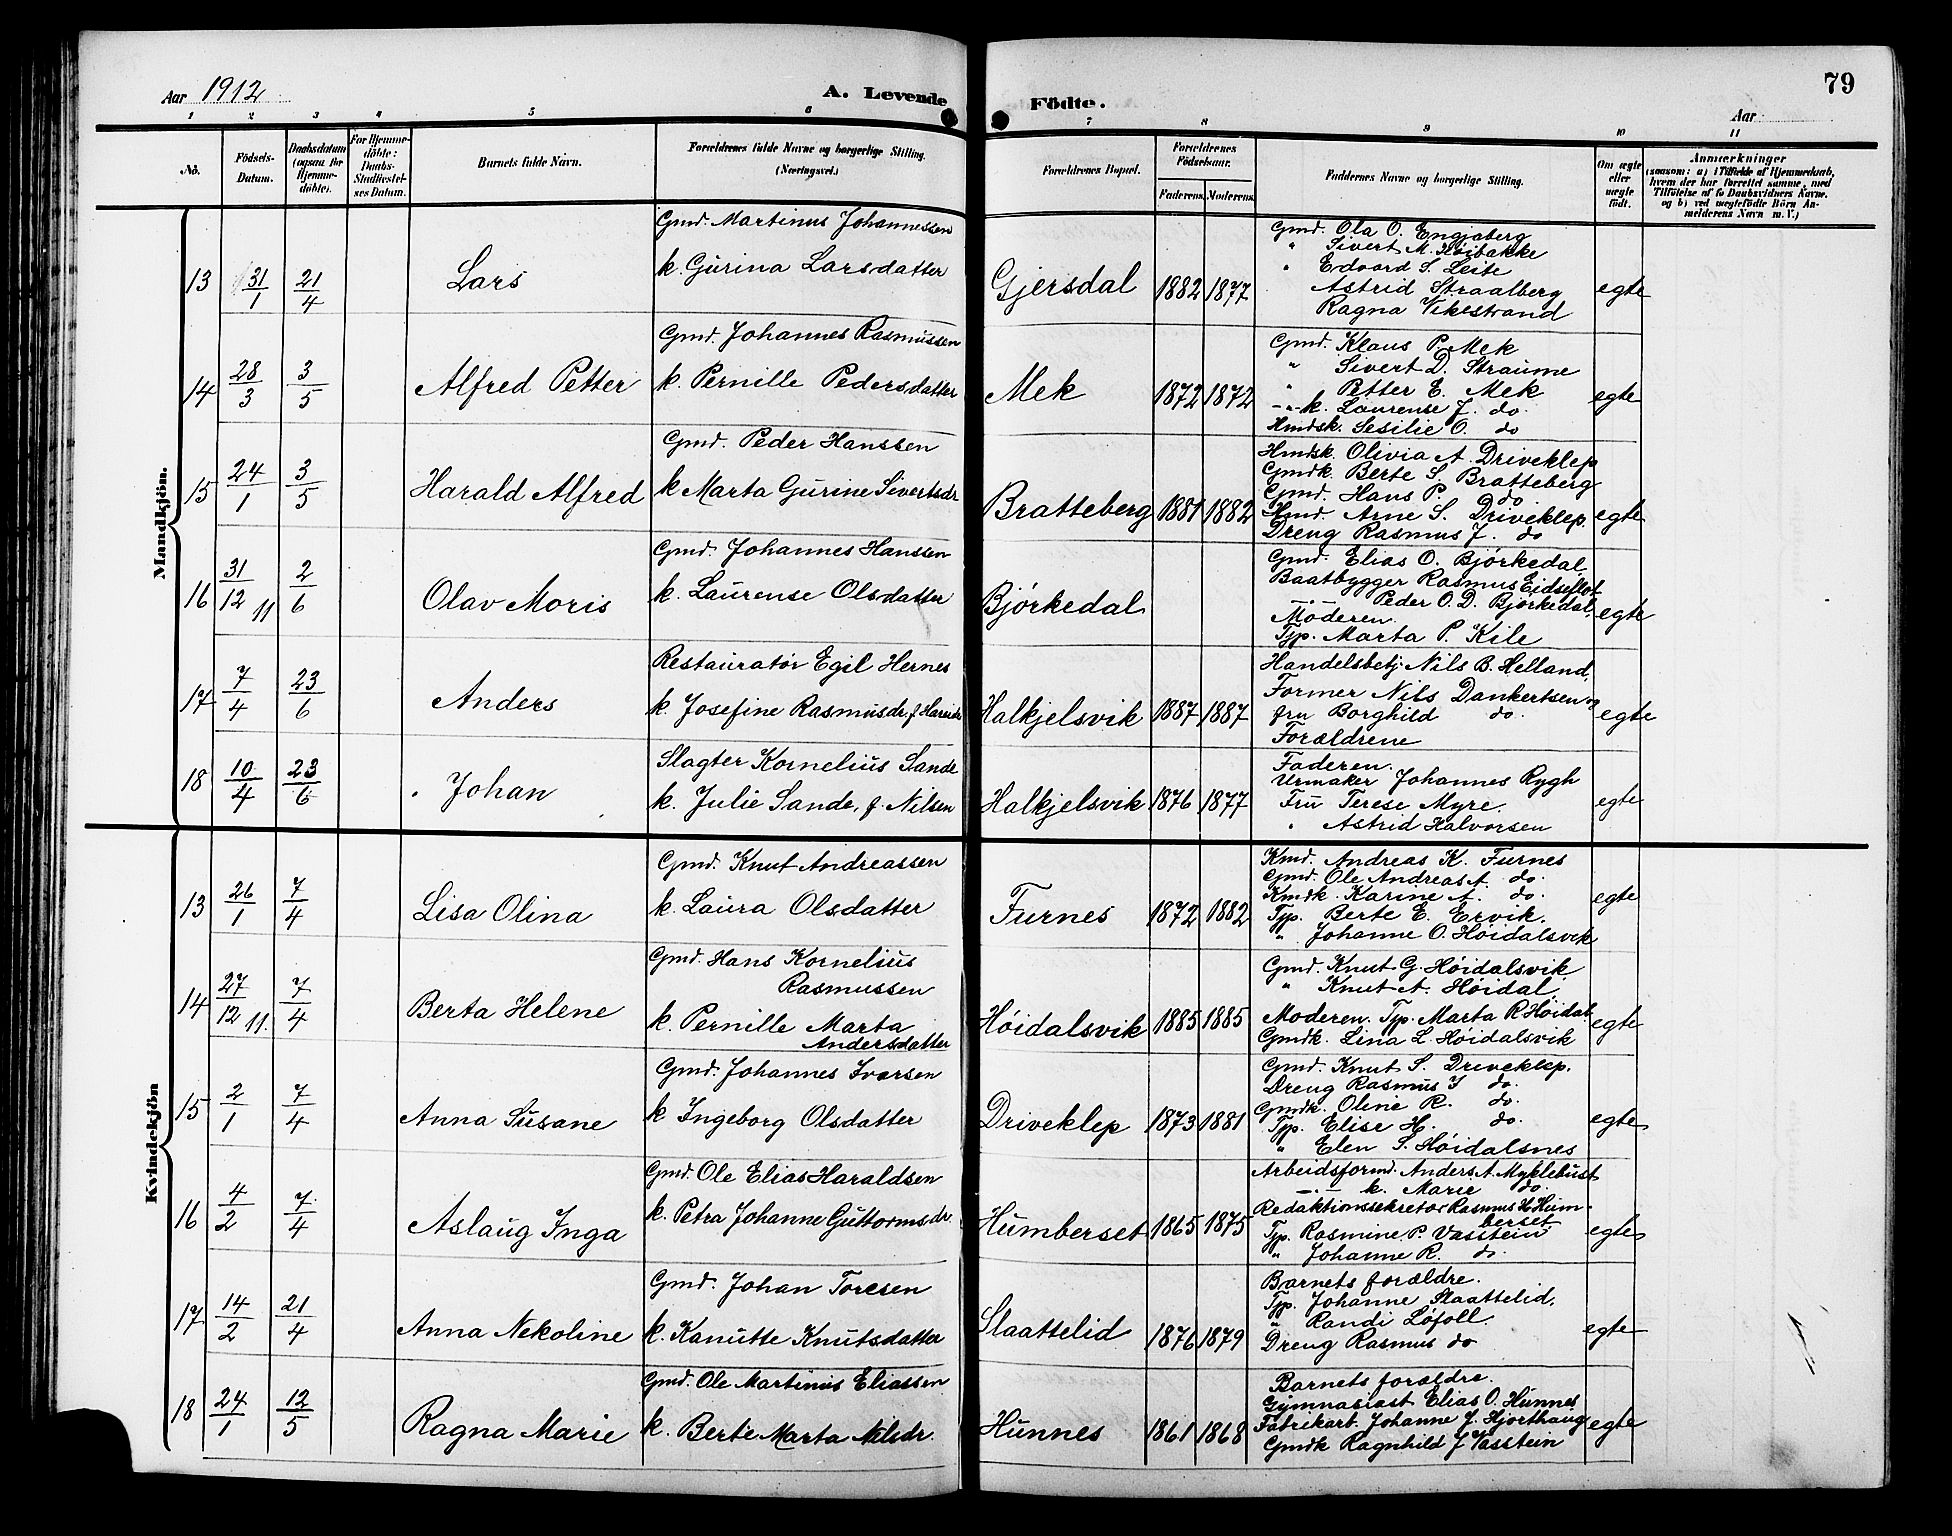 Aar 1912
A. Levende
Födte.
79
Aar
1 2 3 4 5 6 7 8 9 10 11
No.
Födsels-Datum.
Daabsdatum (ogsaa for Hjemmedöbte).
For Hjemmedöbte: Daabs-Stadfæstelses Datum.
Barnets fulde Navn.
Forældrenes fulde Navne og borgerlige Stilling.
(Næringsvei.)
Forældrenes Bopæl.
Forældrenes Födselsaar.
Faderens. Moderens.
Faddernes Navne og borgerlige Stilling.
Om ægte eller uægte födt.
Anmærkninger
(saasom: a) i Tilfælde af Hjemmedaab,
hvem der har forrettet samme, med
Tilföielse af to Daabsvidners Navne,
og b) ved uægtefödte Börn Anmelderens Navn m. V.)
Mandkjön.
13 31/1 21/4 Lars
Gmd. Martinus Johannessen
k. Gurina Larsdatter
Gjersdal 1882 1877
Gmd. Ola O. Engjaberg
" Sivert M. Høibakke
" Edvard S. Leite
Astrid Straalberg
Ragna Vikestrand
egte
14 28/3 3/5 Alfred Petter
Gmd. Johannes Rasmussen
k. Pernille Pedersdatter
Mek 1872 1872
Gmd. Klaus P. Mek
" Sivert D. Straume
" Petter E. Mek
-"- k. Laurense J. do.
Hmdsk. Sesilie O. do
egte
15 24/1 3/5 Harald Alfred
Gmd. Peder Hanssen
k Marta Gurine Sivertsdr
Bratteberg 1881 1882
Hmdsk. Olivia A. Driveklep
Gmdk. Berte S. Bratteberg
Gmd. Hans P. do
Hmd. Arne S. Driveklep.
Dreng Rasmus J. do
egte
16 31/12 11 2/6 Olav Moris
Gmd. Johannes Hanssen
k. Laurense Olsdatter
Bjørkedal
Gmd. Elias O. Bjørkedal
Baatbygger Rasmus Eidseflot
Peder O. D. Bjørkedal,
Moderen.
Tjp. Marta P. Kile
egte
17 7/4 23/6 Anders
Restauratør Egil Hernes
k. Josefine Rasmusdr, f. Hareide
Halkjelsvik 1887 1887
Handelsbetj. Nils B. Helland,
Former Nils Dankertsen og
fru Borghild do.
Forældrene
egte
18 10/4 23/6 Johan
Slagter Kornelius Sande
k. Julie Sande, f. Nilsen
Halkjelsvik 1876 1877
Faderen.
Urmaker Johannes Rygh
Fru Terese Myre.
" Astrid Halvorsen
egte
Kvindekjön
13 26/1 7/4 Lisa Olina
Gmd. Knut Andreassen
k. Laura Olsdatter
Furnes 1872 1882
Kmd. Andreas K. Furnes
Gmd. Ole Andreas A. do.
Kmdk. Karine A. do.
Tjp. Berte E. Ervik.
" Johanne O. Høidalsvik
egte
14 27/12 11. 7/4 Berta Helene
Gmd. Hans Kornelius
Rasmussen
k. Pernille Marta
Andersdatter
Høidalsvik 1885 1885
Gmd. Knut G. Høidalsvik
" Knut A. Høidal
Moderen. Tjp. Marta R. Høidal
Gmdk. Lina L. Høidalsvik
egte
15 2/1 7/4 Anna Susane
Gmd. Johannes Iversen
k Ingeborg Olsdatter
Driveklep 1873 1881
Gmd. Knut S. Driveklep.
Dreng Rasmus I do.
Gmdk. Oline R. do.
Tjp. Elise H. do.
" Elen S. Høidalsnes
egte
16 4/2 7/4 Aslaug Inga
Gmd. Ole Elias Haraldsen
k. Petra Johanne Guttormsdr.
Humberset 1865 1875
Arbeidsformd. Anders A. Myklebust
-"- k. Marie do.
Redaktionssekretær Rasmus H. Hum-
berset
Tjp. Rasmine P. Vasstein
" Johanne R. do.
egte
17 14/2 21/4 Anna Nekoline
Gmd. Johan Toresen
k. Kanutte Knutsdatter
Slaattelid 1876 1879
Barnets forældre.
Tjp. Johanne Slaattelid,
" Randi Løfoll
Dreng Rasmus do
egte
18 24/1 12/5 Ragna Marie
Gmd. Ole Martinus Eliassen
k. Berte Marta Nilsdr.
Hunnes 1861 1868
Barnets forældre.
Gymnasiast Elias O. Hunnes
Fabrikarb. Johanne J. Hjorthaug
Gmdk Ragnhild J Vasstein
egte